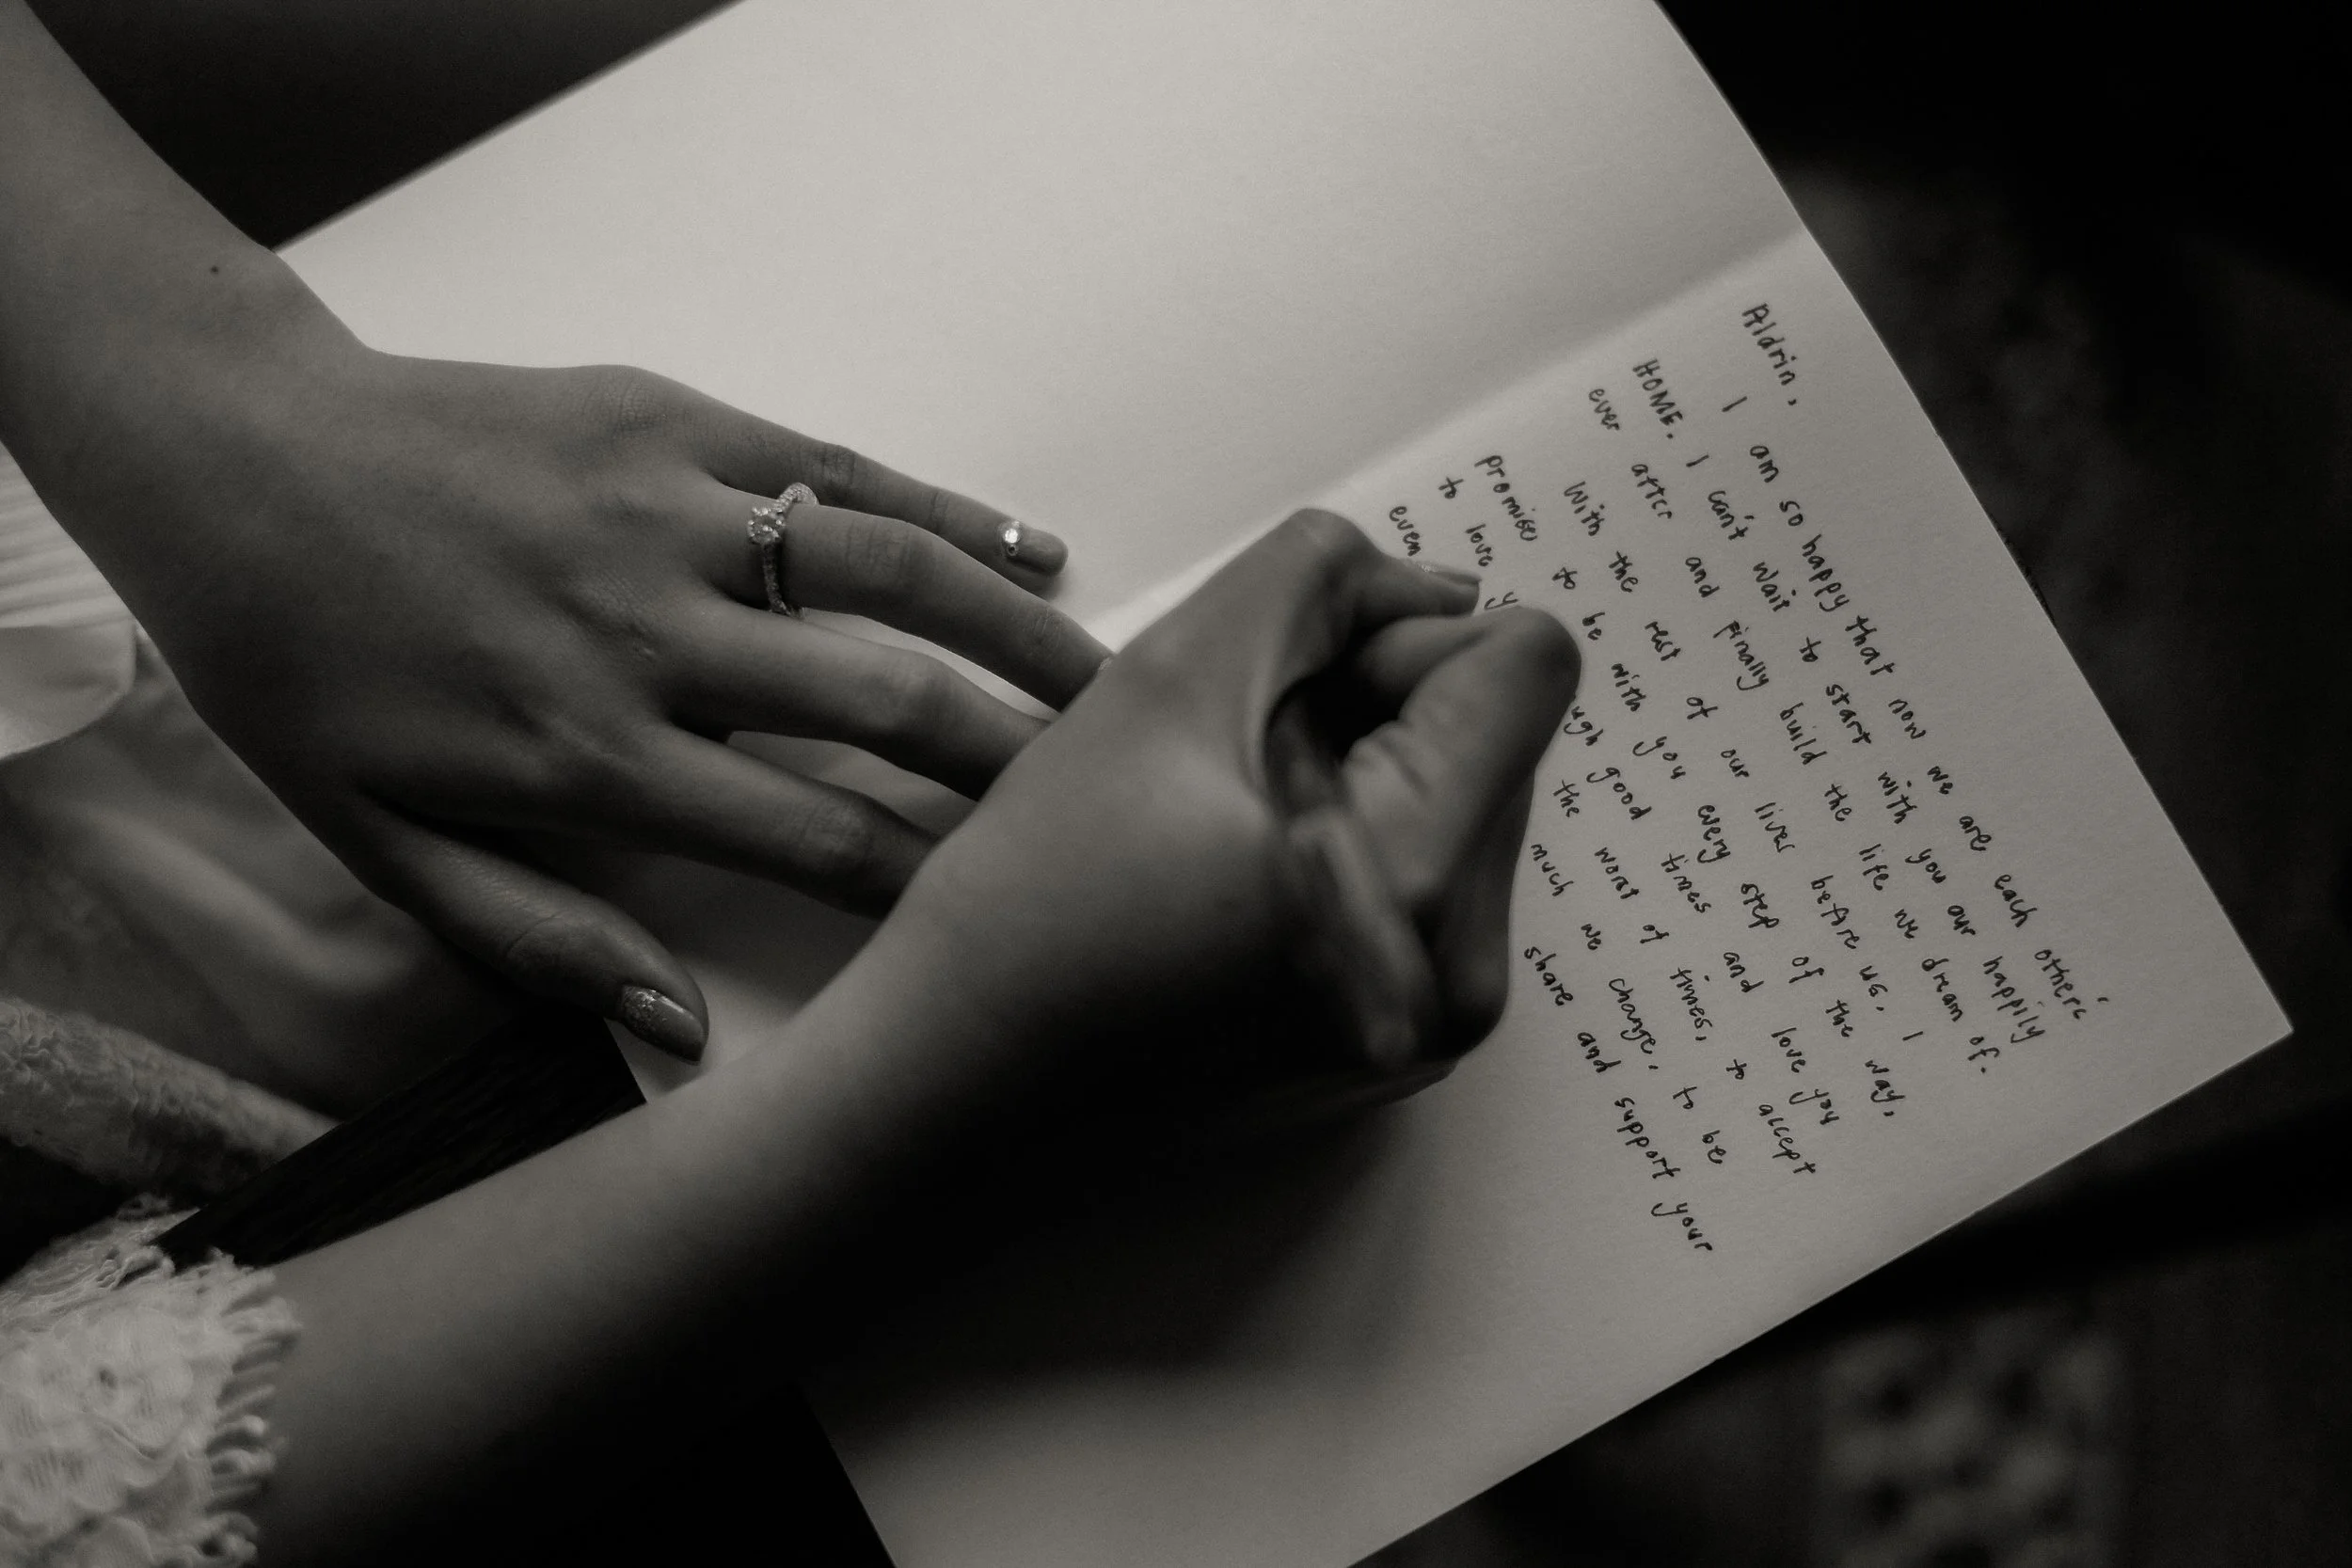 Aldrin,
I am so happy that now we are each others'
HOME. I can't wait to start with you our happily
ever after and finally build the life we dream of.
With the rest of our lives before us, I
promise to be with you every step of the way,
to love good times and love you
even the worst of times, to accept
much we change, to be
share and support your